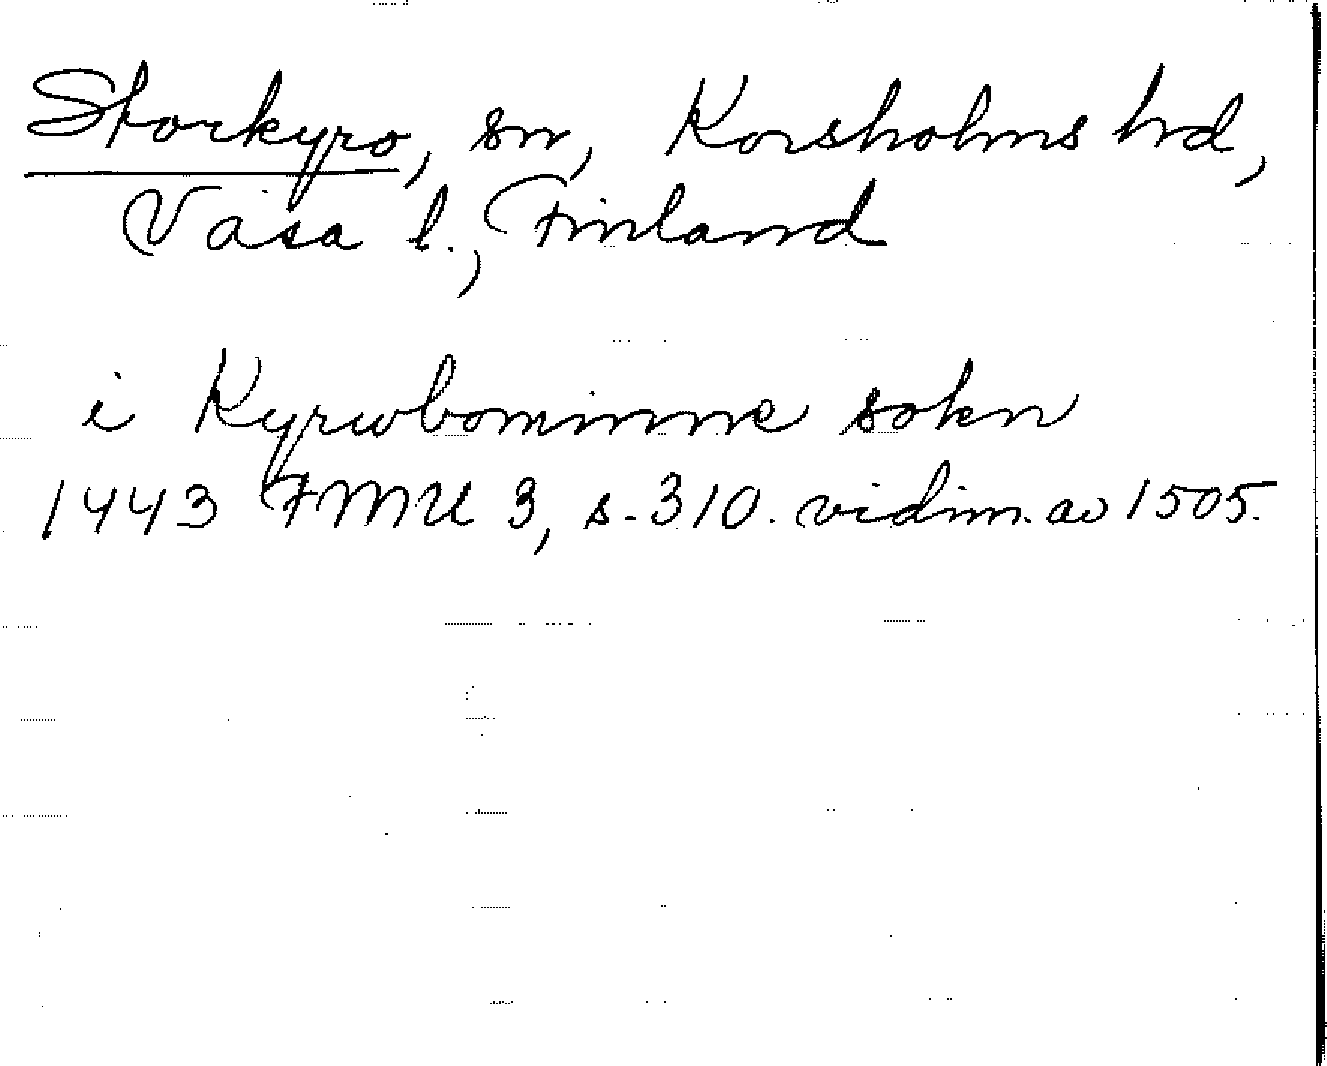 Storkyro, sn, Korsholms hd,
Vasa l., Finland
i Kyrwbominne sokn
1443 FMU 3, s. 310. vidim. av 1505.